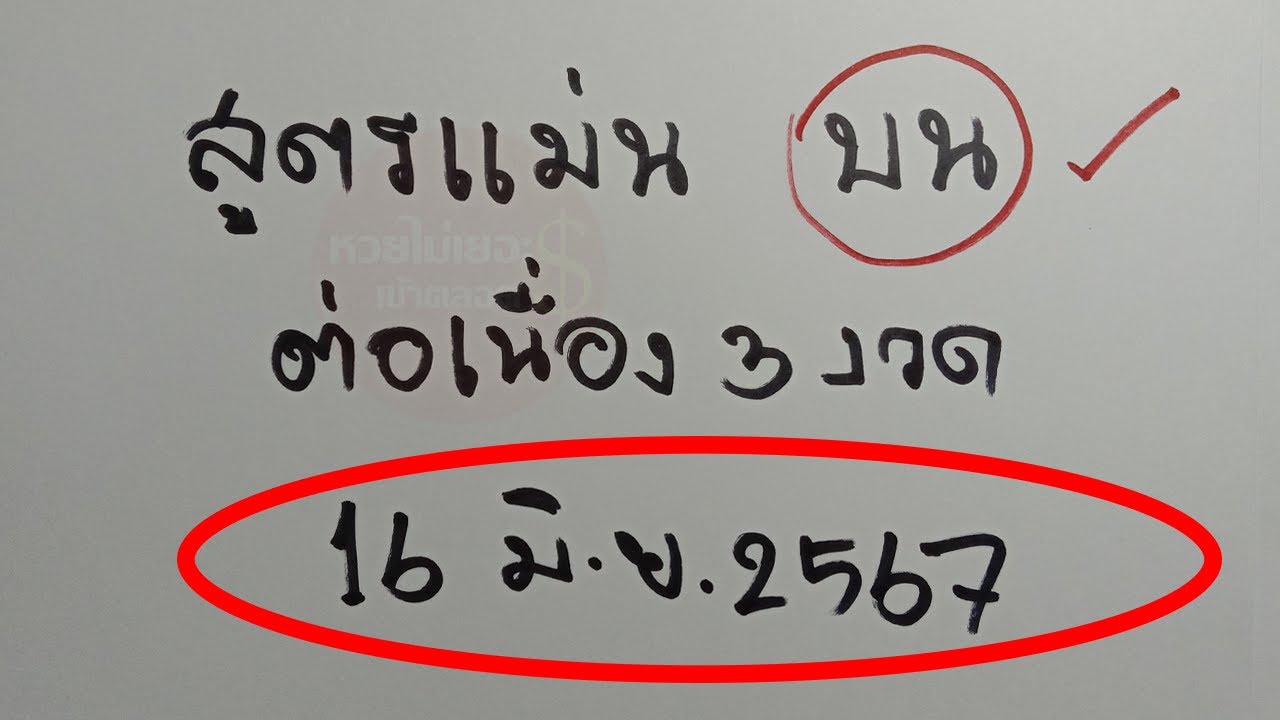 สูตรแม่น บน
หวยไม่เยอะ
เข้าตลอด
ต่อเนื่อง 3 งวด
16 มิ.ย. 2567